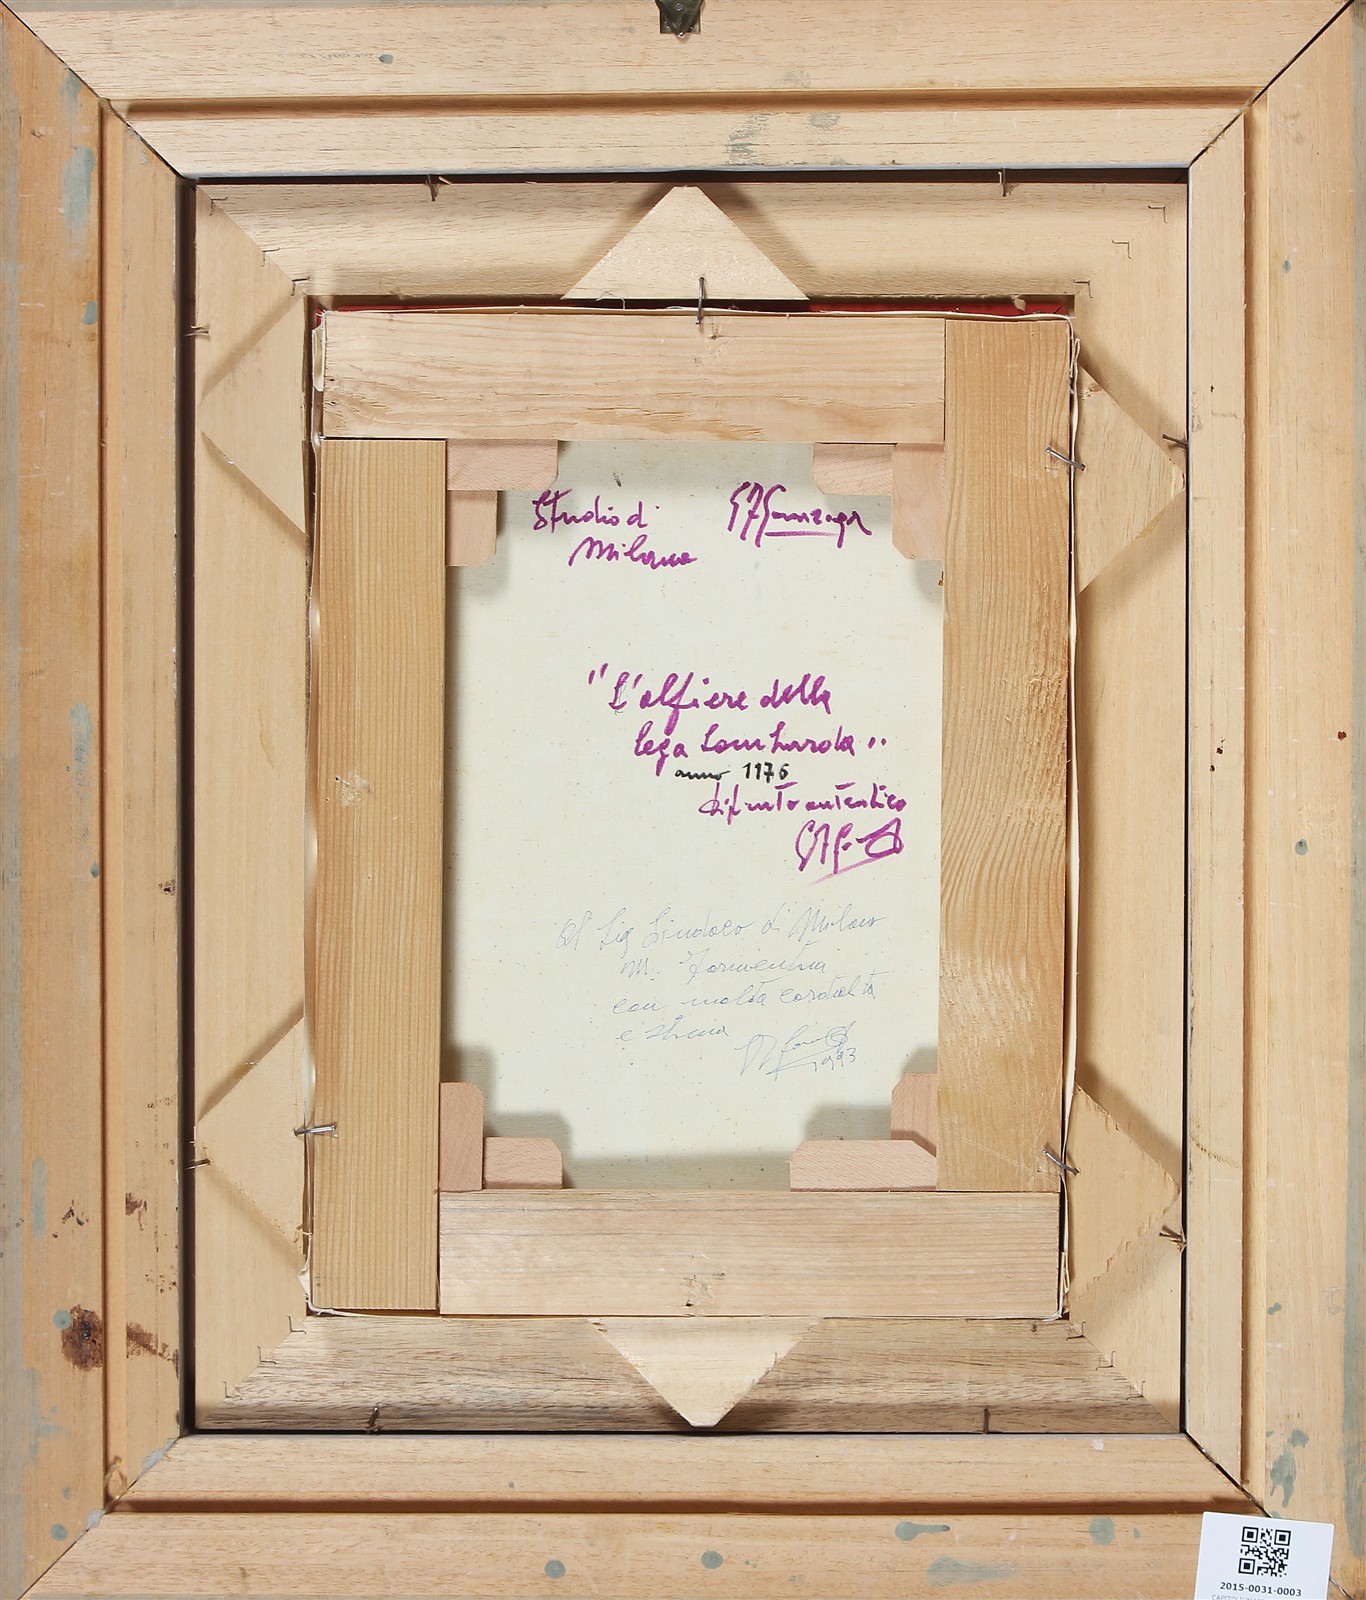 Studio di
Milano
GF Gonzaga
"L'alfiere della
lega Lombarda"
anno 1176
dipinto autentico
Al Sig Sindaco di Milano
M. Formentini
con molta cordialità
e stima
1993
2015-0031-0003